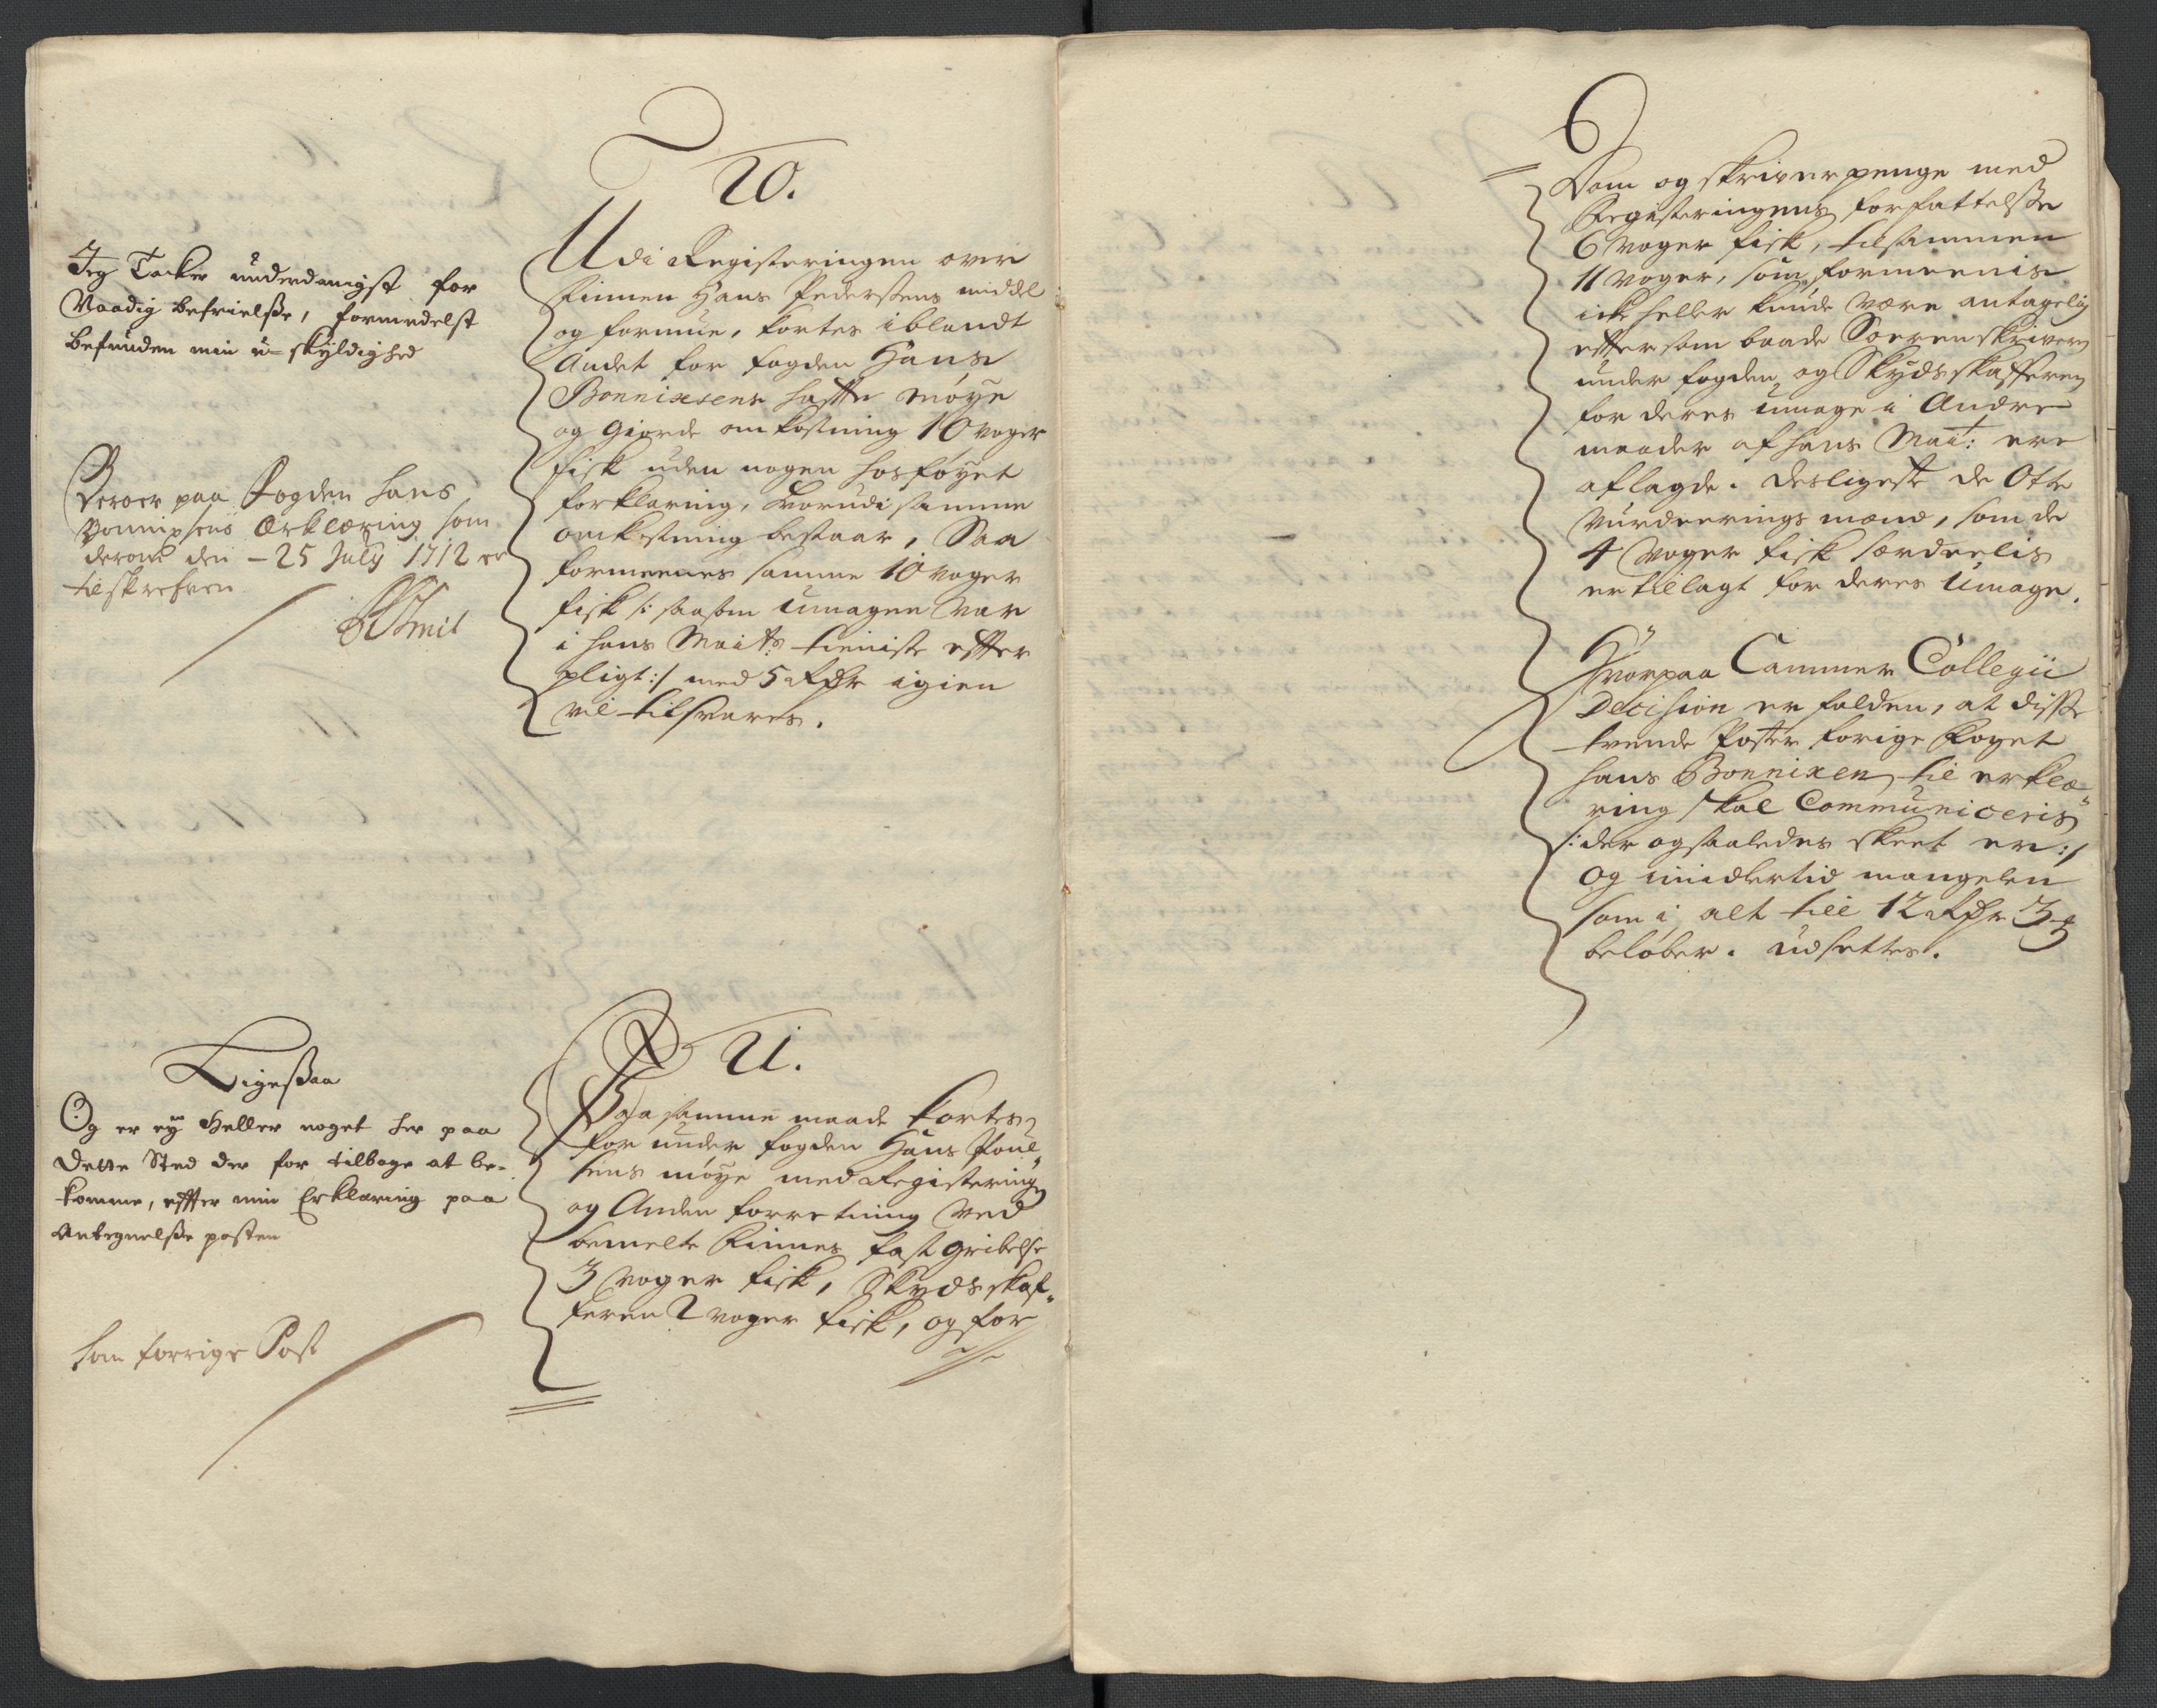 10.
Jeg Tacker underdanigst for
Naadig befrielße, formedelst
befunden min u=skyldighed
Beroer paa Fogden Hans
Bonnixsens Erklæring som
derom den - 25 July 1712 er
tilskrefven
Udi Registeringen over
Finnen Hans Pedersens middel
og formue, kortes iblandt
Andet for fogden Hans
Bonnixsens hafte Møye
og Giorde omkostning 10 voger
fisk uden nogen hosføyet
forklaring, hvorudi samme
omkostning bestaar, Saa
formeenes samme 10 voger
fisk /: saasom Umagen var
i Hans Maits: tieniste effter
pligt :/ med 5 Rdr igien
vil tilsvares.
11.
Ligeßaa
Og er ey Heller noget her paa
dette Sted der for tilbage at be-
komme, effter min Erklæring paa
Antegnelße posten
som forrige Post
Paa samme maade kortes
for under fogden Hans Poul-
sens møye med Registering
og Anden forretning ved
bemelte Finnes fast gribelse
3 voger fisk, Skydsskaf-
feren 2 voger fisk, og for
Dom og skriverpenge med
Registeringens forfattelße
6 voger fisk, tilsammen
11 voger, som formeenis
icke heller kunde være antagelig
efftersom baade Sorenskriveren
under fogden og Skydsskafferen
for deres umage i Andre
maader af hans Mait: ere
aflagde. desligeste de Otte
Vurderings mænd, som de
4 voger fisk særdeelis
er tillagt for deres Umage.
Hvorpaa Cammer Collegii
Decision er falden, at disse
tvende Poster forige Foget
Hans Bonnixen til erklæ-
ring skal Communiceris
/: der ogsaaledes skeet er :/
og imidlertid mangelen
som i alt till 12 Rdr 3 ß
beløber. udsettes.